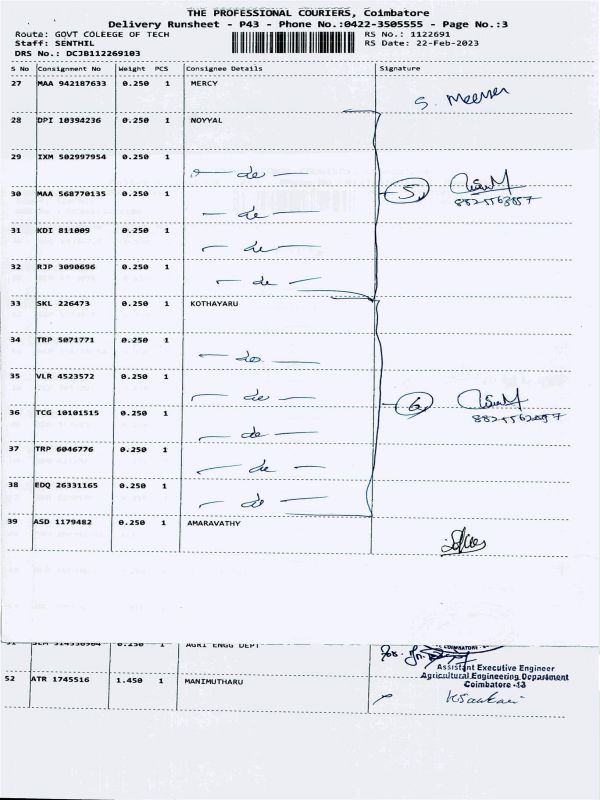 THE PROFESSIONAL COURIERS, Coimbatore
Delivery Runsheet - P43 - Phone No.:0422-3505555 - Page No.:3
Route: GOVT COLEEGE OF TECH RS No.: 1122691
Staff: SENTHIL RS Date: 22-Feb-2023
DRS No.: DCJB112269103
S No Consignment No Weight PCS Consignee Details Signature
27 MAA 942187633 0.250 1 MERCY
28 DPI 10394236 0.250 1 NOYYAL
29 IXM 502997954 0.250 1 - do -
30 MAA 568770135 0.250 1 - do - 5
31 KDI 811009 0.250 1 - do -
32 RJP 3090696 0.250 1 - do -
33 SKL 226473 0.250 1 KOTHAYARU
34 TRP 5071771 0.250 1 - do -
35 VLR 4523572 0.250 1 - do -
36 TCG 10101515 0.250 1 - do - 6
37 TRP 6046776 0.250 1 - do -
38 EDQ 26331165 0.250 1 - do -
39 ASD 1179482 0.250 1 AMARAVATHY
0.250 1 AGRI ENGG DEPT
COIMBATORE
Assistant Executive Engineer
Agricultural Engineering Department
Coimbatore -13
52 ATR 1745516 1.450 1 MANIMUTHARU